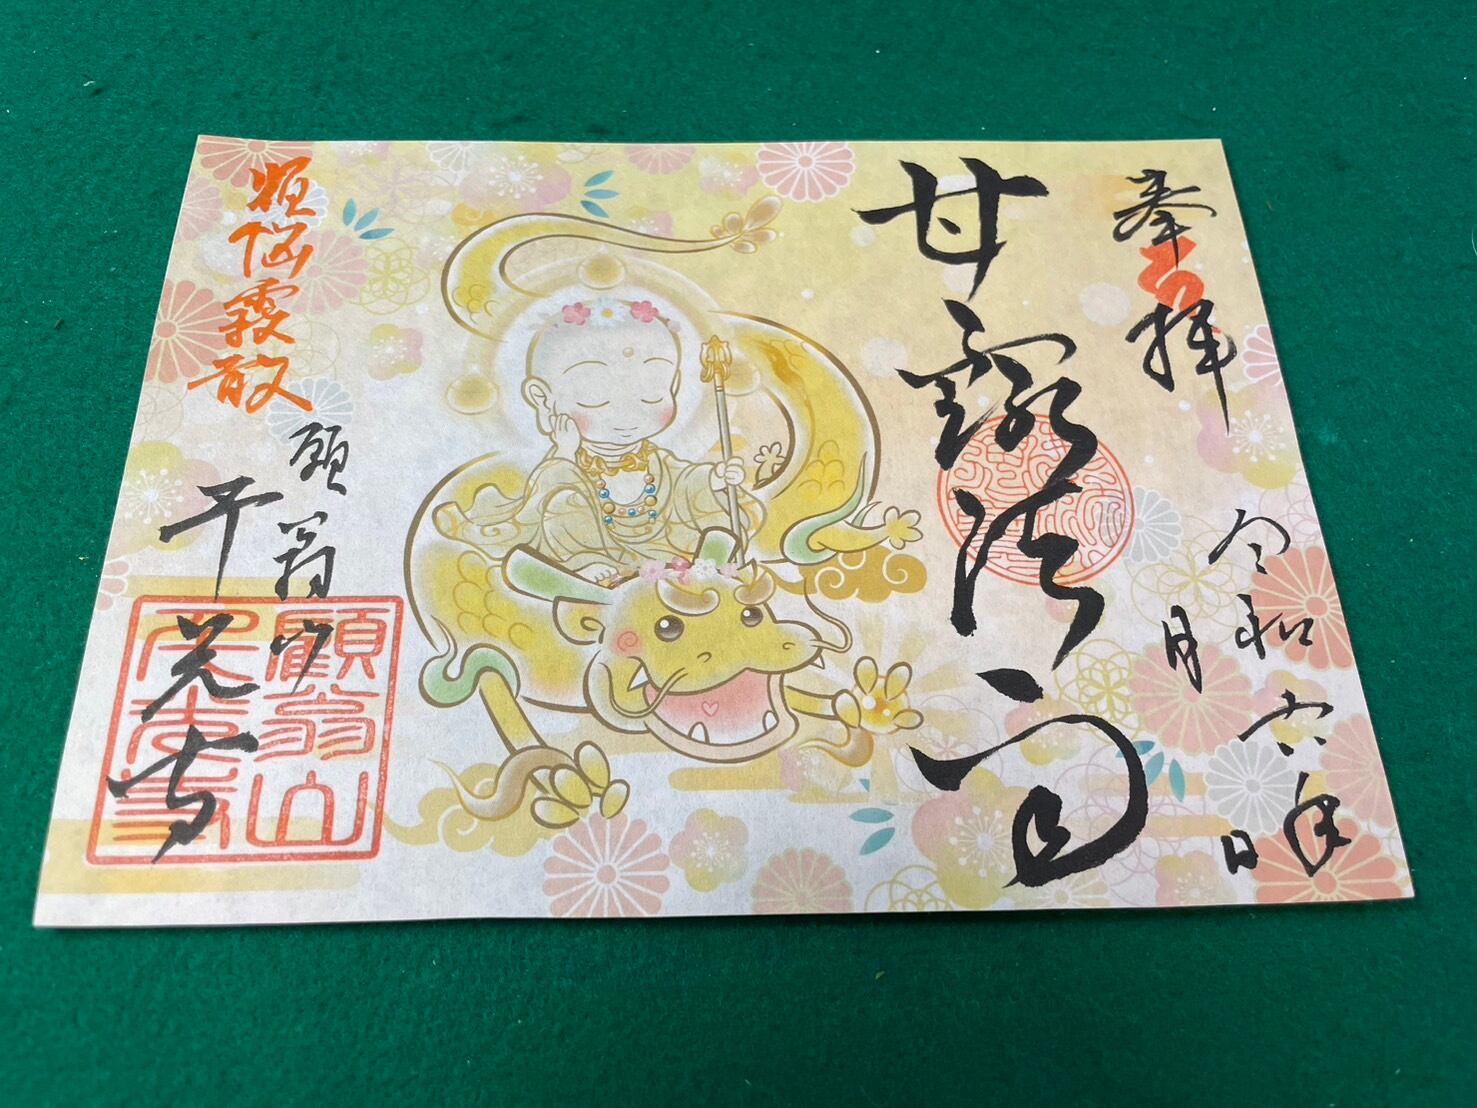 奉拝
令和六年
月 日
甘露法雨
煩悩霧散
顧翁山
千光寺
顧翁山